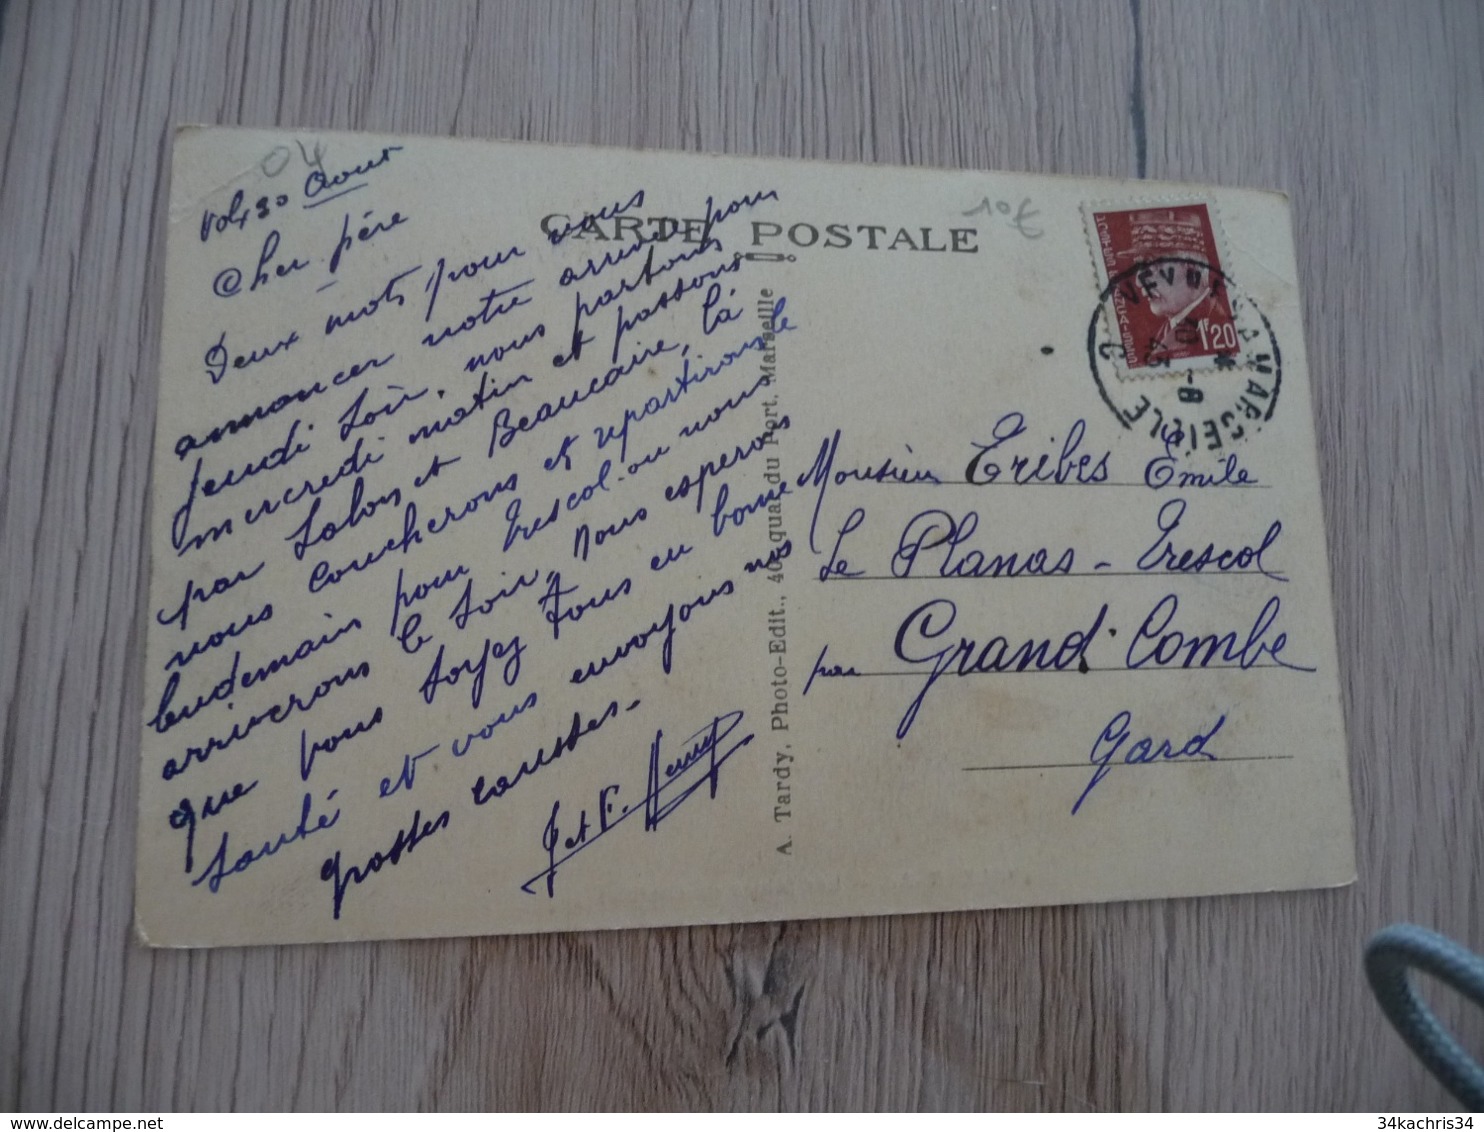 04
Volx 30 Aout
Cher père
Deux mots pour vous
annoncer notre arrivée pour
jeudi soir, nous partons
mercredi matin et passons
par Salon et Beaucaire, là
nous coucherons et repartirons le
lendemain pour Trescol où nous
arriverons le soir, nous esperons
que vous soyez tous en bonne
santé et vous envoyons nos
grosses caresses.
J et F.
CARTE POSTALE
A. Tardy, Photo-Edit., 40, quai du Port, Marseille
10€
1F20
MARSEILLE
Monsieur Eribes Émile
Le Planas - Trescol
par Grand'Combe
Gard
34kachris34